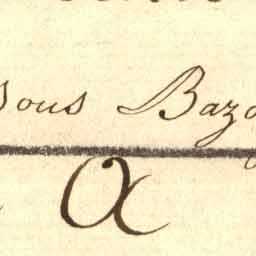 sous Bazo
α